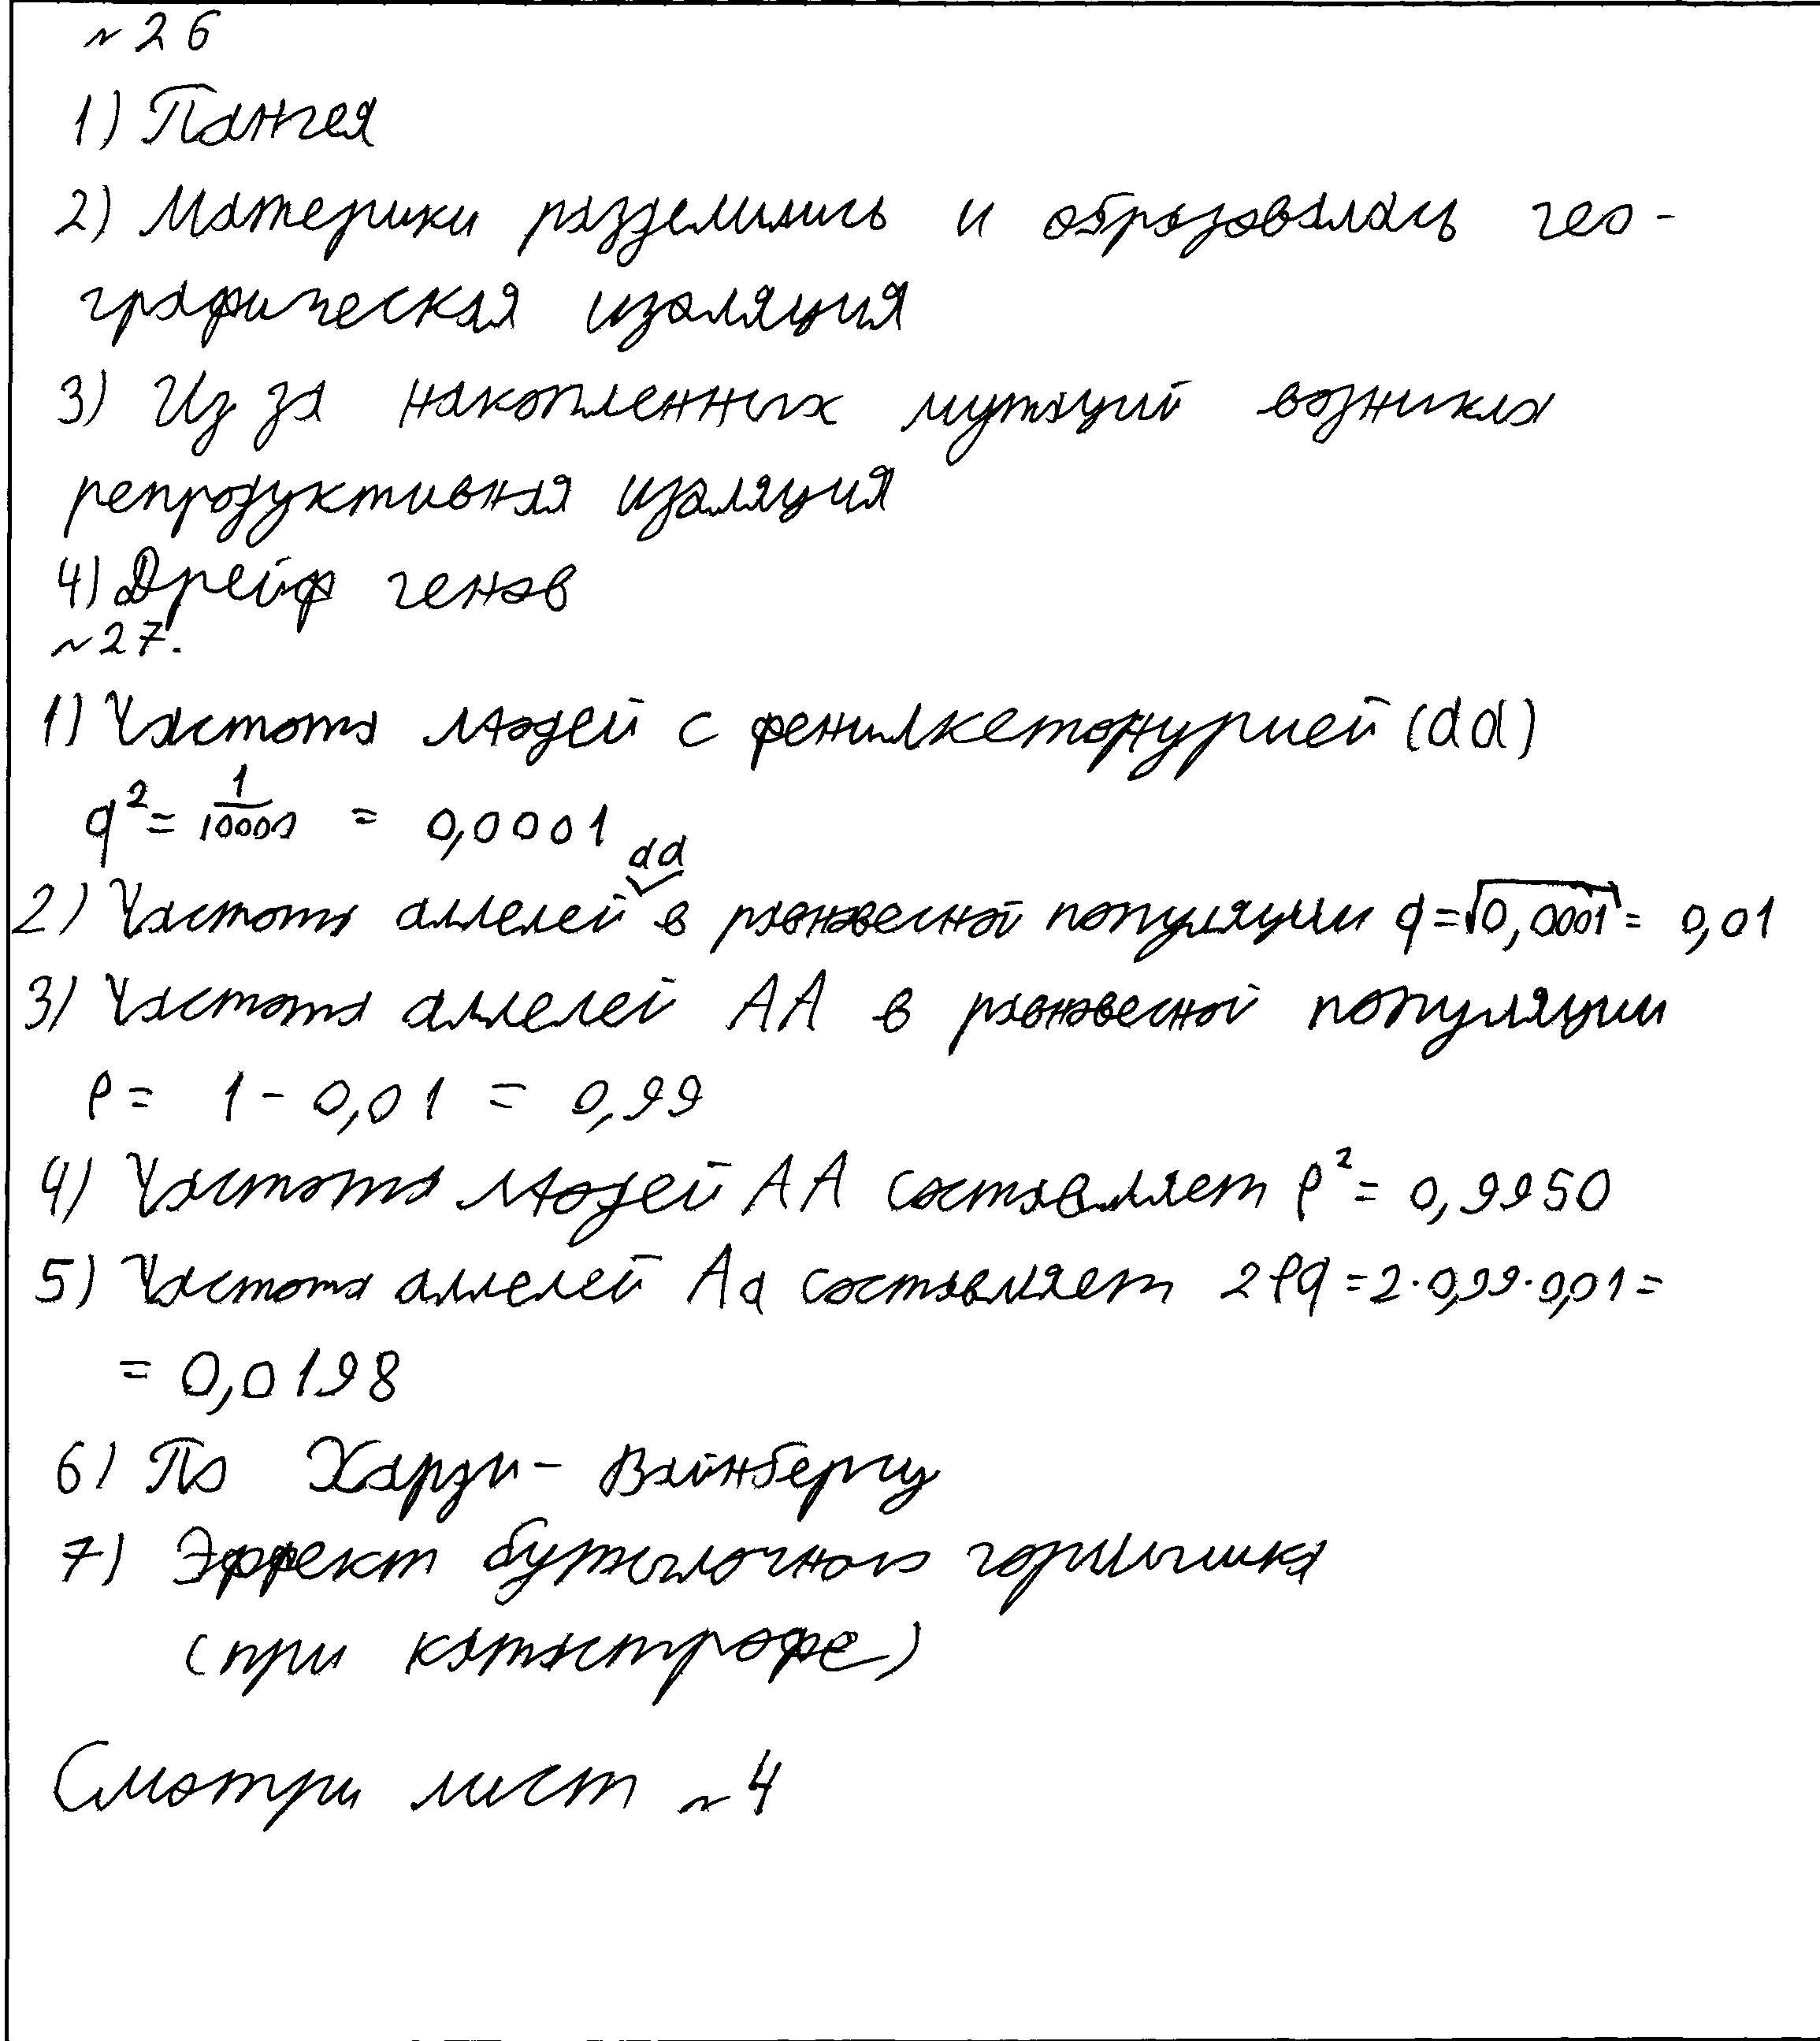 №26
1) Пангея
2) Материки разделились и образовалась гео-
графическая изоляция
3) Из за накопленных мутаций возникла
репродуктивная изоляция
4) Дрейф генов
№27.
1) Частота людей с фенилкетонурией (аа)
q² = 1/10000 = 0,0001
аа
2) Частота аллелей в равновесной популяции q = √0,0001 = 0,01
3) Частота аллелей АА в равновесной популяции
p = 1 - 0,01 = 0,99
4) Частота людей АА составляет p² = 0,9950
5) Частота аллелей Аа составляет 2pq = 2·0,99·0,01 =
= 0,0198
6) По Харди - Вайнбергу
7) Эффект бутылочного горлышка
(при катастрофе)
Смотри лист №4